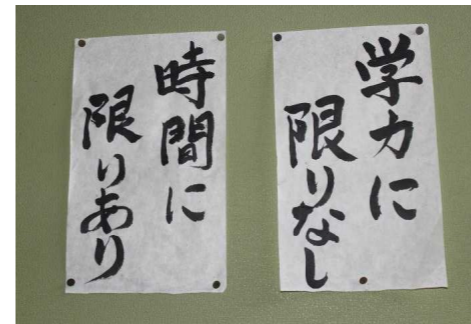 学力に
限りなし
時間に
限りあり